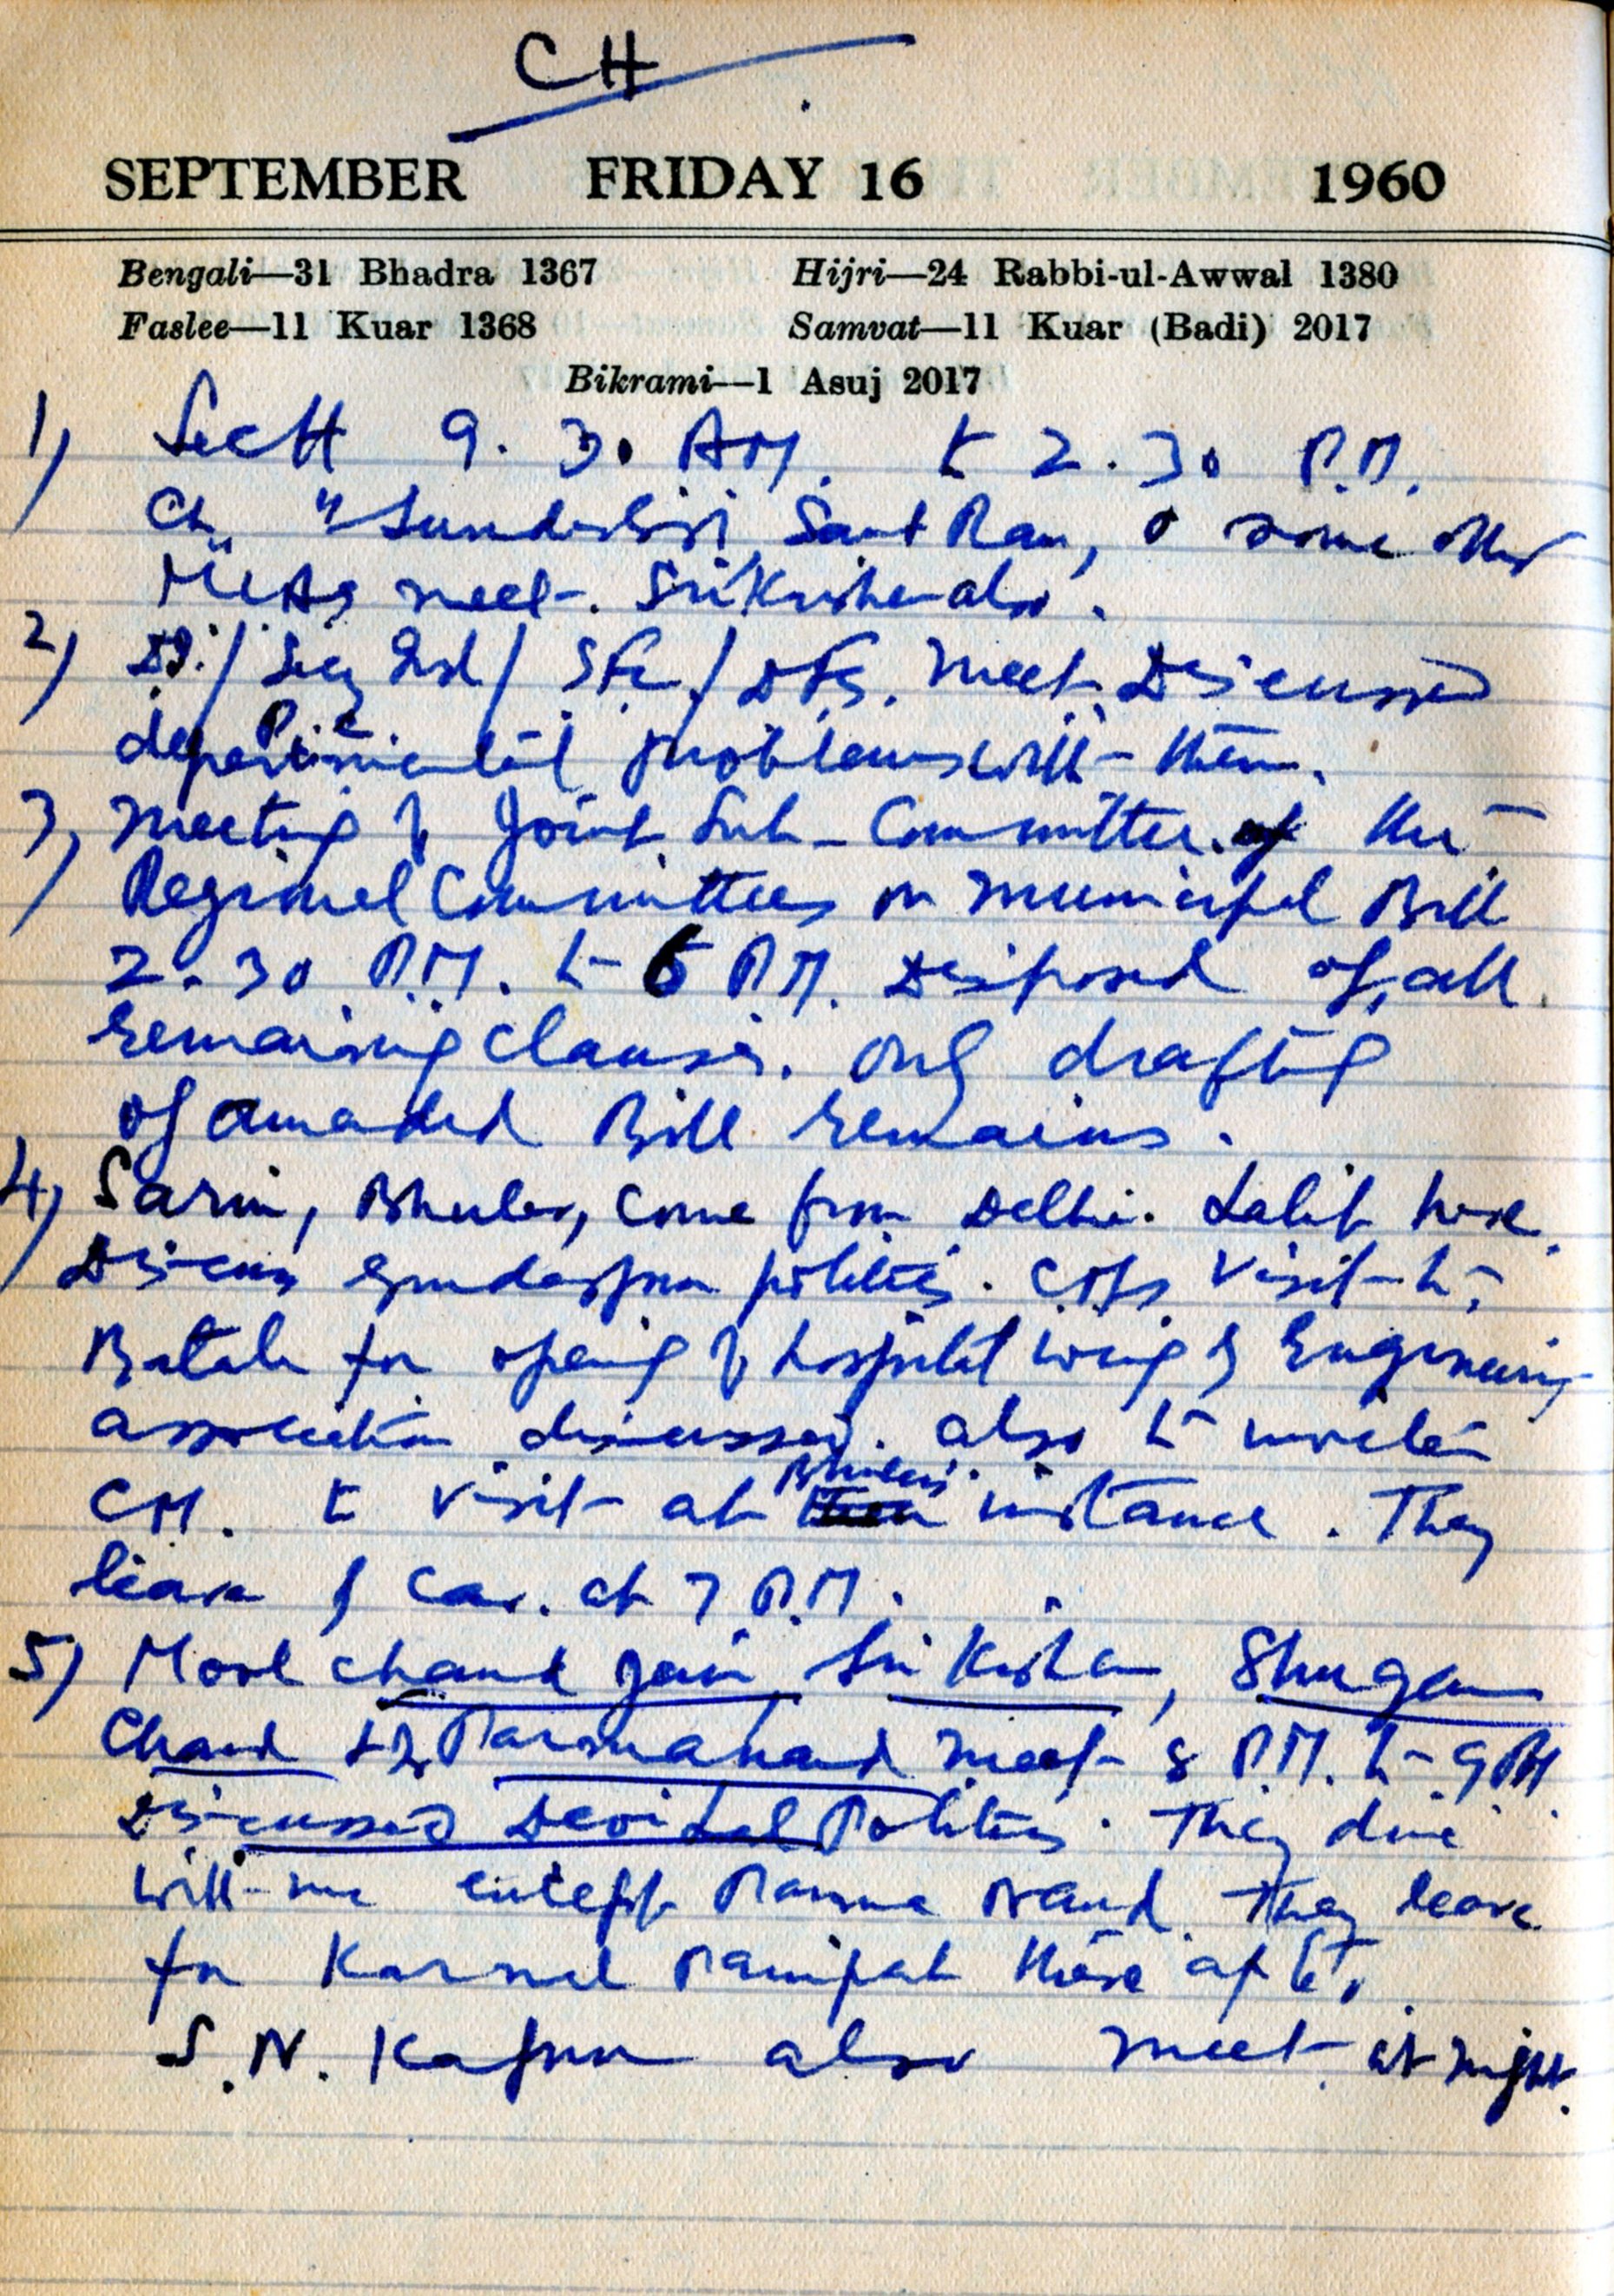 CH
SEPTEMBER FRIDAY 16 1960
Bengali—31 Bhadra 1367 Hijri—24 Rabbi-ul-Awwal 1380
Faslee—11 Kuar 1368 Samvat—11 Kuar (Badi) 2017
Bikrami—1 Asuj 2017
1) Sectt 9.30 AM. to 2.30 P.M.
Ch. Sunder Singh, Sant Ram, & some other
MLAs meet. Sri Krishen also.
2) DI./ Secy Ind/ / DFS. meet. Discussed
departmental problems with them.
3) Meeting of Joint Sub-Committee of the
Regional Committees on Municipal Bill
2.30 P.M. to 6 P.M. Disposed of all
remaining clauses. Only drafting
of amended Bill remains.
4) Sarin, Bhuler, come from Delhi. Lalit here.
Discuss Gurdaspur politics. CMs visit to
Batala for opening of hospital wing & Engineering
association discussed. also to invite
CM. to visit at Bhuler's instance. They
leave by car. at 7 P.M.
5) Mool Chand Jain, Sri Krishen, Shugan
Chand & Parmanand meet 8 P.M. to 9 PM
Discussed Devi Lal Politics. They dine
with me except Parma Nand. They leave
for Karnal Panipat there after.
S.N. Kapur also meet at night.